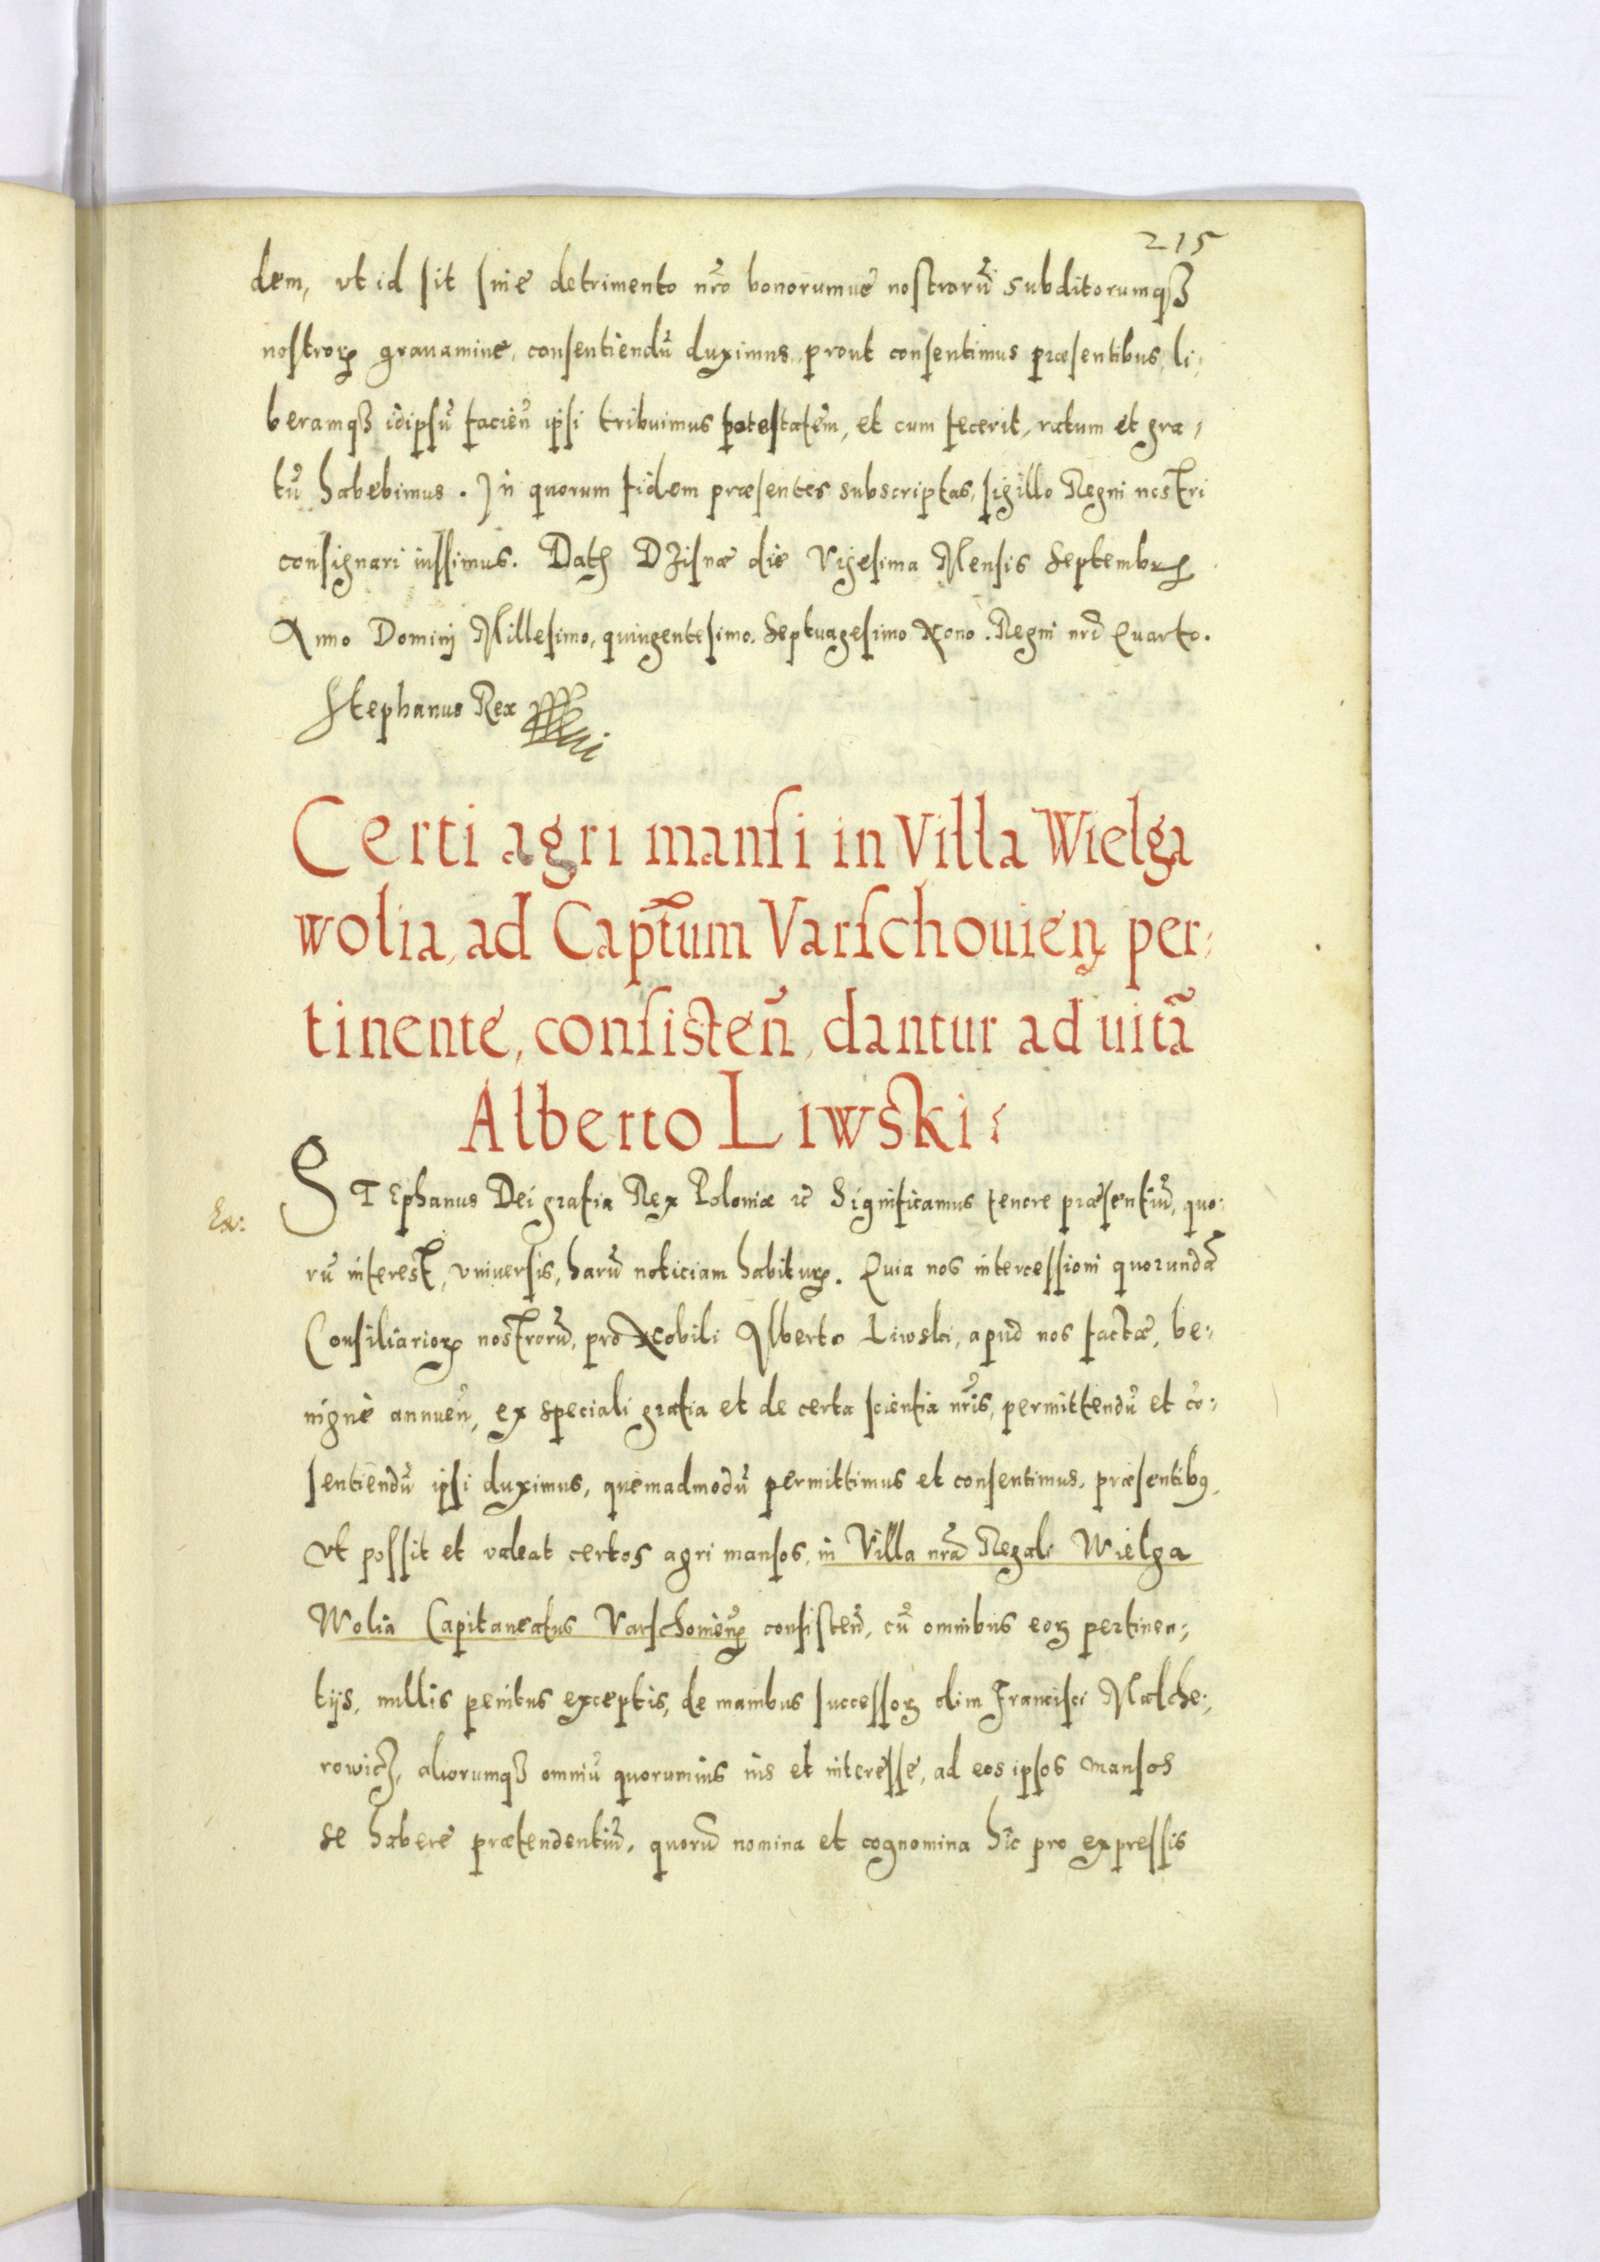 215
dem, ut id sit sine detrimento nr̃o bonorumue nostrorũ subditorumqꝫ
nostroꝝ grauamine, consentiendũ duximus, prout consentimus præsentibus, li-
beramqꝫ idipsũ facień ipsi tribuimus potestatem, et cum fecerit, ratum et gra-
tũ habebimus. In quorum fidem præsentes subscriptas, sigillo Regni nostri
consignari iussimus. Datꝭ Dzisnæ die Vigesima Mensis Septembꝝ
Anno Domini Millesimo, quingentesimo, Septuagesimo Nono. Regni nr̃i Quarto.
Stephanus Rex
Certi agri mansi in Villa Wielga
wolia, ad Captũm Varschouień per-
tinente, consisteñ, dantur ad uitã
Alberto Liwski:
Ex:
STEphanus Dei gratia Rex Poloniæ ꝛc̃ Significamus tenore præsentiũ, quo-
rũ interest, vniuersis, harũ noticiam habituꝝ. Quia nos intercessioni quorundã
Consiliarioꝝ nostrorũ, pro Nobili Alberto Liwski, apud nos factæ, be-
nignè annueñ, ex speciali gratia et de certa scientia nr̃is, permittendũ et cõ-
sentiendũ ipsi duximus, quemadmodũ permittimus et consentimus, præsentibꝰ,
Vt possit et valeat certos agri mansos, in Villa nr̃a Regali Wielga
Wolia Capitaneatus Varschouieñ consisteñ, cũ omnibus eoꝝ pertinen-
tijs, nullis penitus exceptis, de manibus successoꝝ olim Francisci Malche-
rowicz, aliorumqꝫ omniũ quorumuis ius et interesse, ad eos ipsos mansos
se habere prætendentiũ, quorũ nomina et cognomina hîc pro expressis